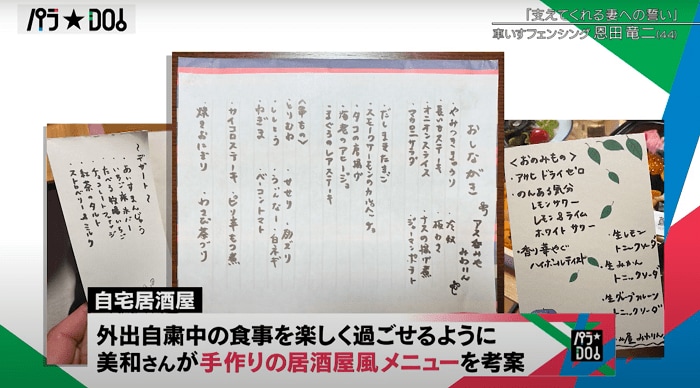 パラ★DO!
「支えてくれる妻への誓い」
車いすフェンシング 恩田 竜二(44)
おしながき
やみつききゅうり
長いもステーキ
オニオンスライス
マカロニサラダ
冷奴
板わさ
ナスの揚げ煮
ジャーマンポテト
だしまきたまご
スモークサーモンのカルパッチョ
タコの唐揚げ
海老のアヒージョ
まぐろのレアステーキ
<串もの>
とりむね
ししとう
ねぎま
せせり
うぃんなー
ベーコントマト
白ネギ
サイコロステーキ
ピリ辛もつ煮
焼きおにぎり
わさび茶づけ
デザート
いちご
チョコレート
紅茶のタルト
ストロベリー&ミルク
<おのみもの>
・アサヒ ドライゼロ
・のんある気分
レモンサワー
レモン&ライム
ホワイトサワー
・香り華やぐ
ハイボールテイスト
・生レモン
トニックソーダ
・生みかん
トニックソーダ
・生グレープフルーツ
トニックソーダ
自宅居酒屋
外出自粛中の食事を楽しく過ごせるように
美和さんが手作りの居酒屋風メニューを考案
パラ★DO!